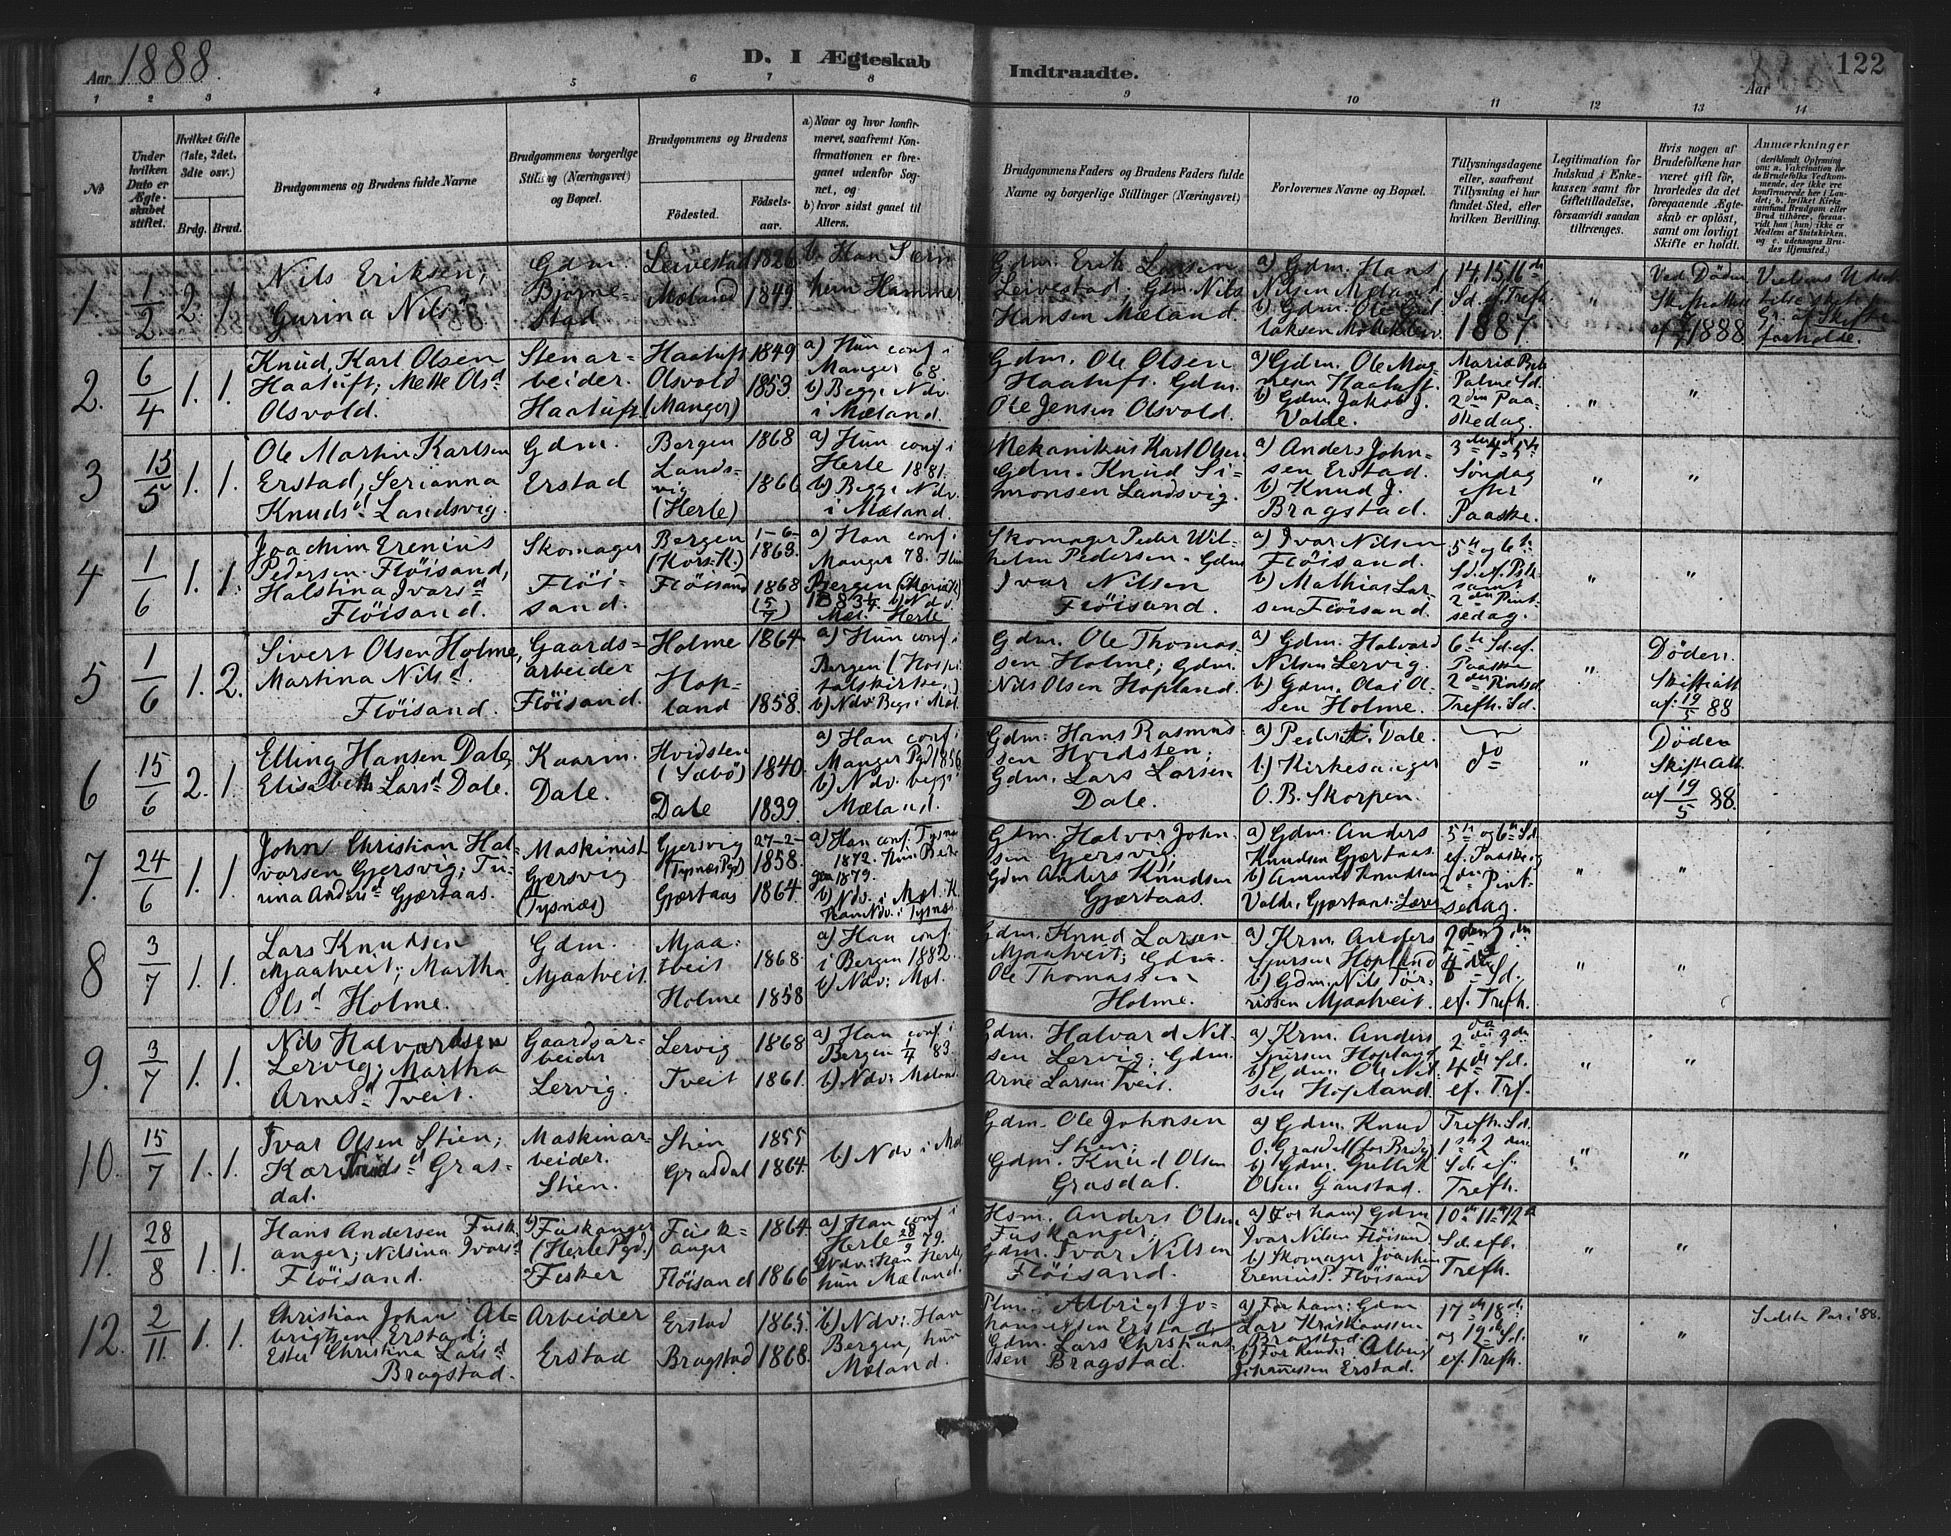 Aar 1888.
D. I Ægteskab
Indtraadte.
Aar
122
1 2 3 4 5 6 7 8
9 10 11 12 13 14
№
Under hvilken Dato er Ægteskabet stiftet.
Hvilket Gifte (1ste, 2det, 3die osv.)
Brdg. Brud.
Brudgommens og Brudens fulde Navne
Brudgommens borgerlige Stilling (Næringsvei) og Bopæl.
Brudgommens og Brudens
Födested.
Födselsaar.
a) Naar og hvor konfirmeret, saafremt Konfirmationen er foregaaet udenfor Sognet, og
b) hvor sidst gaaet til Alters.
Brudgommens Faders og Brudens Faders fulde Navne og borgerlige Stillinger (Næringsvei)
Forlovernes Navne og Bopæl.
Tillysningsdagene eller, saafremt Tillysning ei har fundet Sted, efter hvilken Bevilling.
Legitimation for Indskud i Enkekassen samt for Giftetilladelse, forsaavidt saadan tiltrænges.
Hvis nogen af Brudefolkene har været gift för, hvorledes da det foregaaende Ægteskab er oplöst, samt om lovligt Skifte er holdt.
Anmærkninger
1. 1/2 2. 1.
Nils Eriksen,
Gurina Nilsd
Gdm. Bjørnestad
Leivestad 1826
Mæland 1849
b. Han Særv. hun Hammer
Gdm. Erik Larsen
Leivestad; Gdm. Nils
Hansen Mæland.
a) Gdm. Hans
Nilsen Mæland
b) Gdm. Ole
14. 15. 16 de
Sd. ef. Trefh.
1887.
"
Ved Døden
Skifteattest
af 1888
forholde.
2. 6/4 1. 1.
Knud, Karl Olsen
Haatuft; Mette Olsd
Olsvold.
Stenarbeider.
Haatuft
Haatuft 1849
Olsvold 1853
(Manger)
a) Hun conf i
Manger 68
b) Begge Ndv.
i Mæland.
Gdm. Ole Olsen
Haatuft. Gdm.
Ole Jensen Olsvold.
a) Gdm. Ole Magnesen Haatuft.
b) Gdm. Jakob J.
Valde.
Palme Sd.
2 den Paaskedag.
" "
3 13/5 1. 1.
Ole Martin Karlsen
Erstad, Serianna
Knudsd Landsvig.
Gdm.
Erstad
Bergen 1868
Landsvig 1866
(Herle)
a) Hun conf i
Herle 1881.
b) Begge Ndv.
i Mæland.
Mekanikus Karl Olsen
Gdm. Knud Simonsen Landsvig.
a) Anders Johnsen Erstad.
b) Knud J.
Bragstad.
3 die 4 de 5 te
Søndag
efter
Paaske.
" "
4 1/6 1. 1.
Joachim Erenius
Pedersen Fløisand,
Halstina Ivarsd
Fløisand.
Skomager
Fløisand.
Bergen 1-6-
(Kors K.) 1863.
Fløisand 1868
(5/7)
a) Han conf i
Manger 78. Hun
Bergen (Maria K)
b) Ndv.
Mæl. Herle
Skomager Peder Wilhelm Pedersen. Gdm
Ivar Nilsen
Fløisand.
a) Ivar Nilsen
Fløisand.
b) Mathias Larsen Fløisand.
5te og 6te
Sd. ef. Psk.
samt
2 den Pintsedag.
" "
5 1/6 1. 2.
Sivert Olsen Holme,
Martina Nilsd.
Fløisand.
Gaardsarbeider
Fløisand.
Holme 1864.
Hopland 1858.
a) Hun conf i
Bergen (Hospitalskirken)
b) Ndv. Begge i Mæl.
Gdm. Ole Thomassen Holme; Gdm.
Nils Olsen Hopland.
a) Gdm Halvard
Nilsen Lervig.
b) Gdm. Olai Olsen Holme.
6 te Sd. ef.
Paaske
2 den Pintsd.
Trefh. Sd.
"
Døden.
Skifteatt
af: 19/5 88
6 15/6 2. 1.
Elling Hansen Dale,
Elisabeth Larsd Dale.
Kaarm.
Dale.
Hvidsten
(Sæbø) 1840.
Dale 1839
a) Han conf i
Manger Pgd 1856
b) Ndv. begge i
Mæland.
Gdm. Hans Rasmussen Hvidsten;
Gdm. Lars Larsen
Dale.
a) Peder I. Dale.
b) Kirkesanger
O. B. Skorpen.
do
"
Døden
Skifte Att.
af 19/5 88.
7. 24/6 1. 1.
John Christian Halvorsen Gjersvig; Turina Andersd Gjærtaas.
Maskinist
Gjersvig
(Tysnæs)
Gjersvig 27-2-
(Tysnæs Pgd) 1858.
Gjærtaas 1864.
a) Han conf. Tysnæs
1872. Hun Bergen 1879.
b) Ndv. i Mæl. K.
Han Ndv. i Tysnæs.
Gdm. Halvor Johnsen Gjersvig,
Gdm Anders Knudsen
Gjærtaas.
a) Gdm. Anders
Knudsen Gjærtaas.
b) Amund Knudsen
Valde, Gjærtaas: Lærer
5 te og 6 te Sd.
ef. Paaske og
2 den Pintsedag.
" "
8 3/7 1. 1.
Lars Knudsen
Mjaatveit; Martha
Olsd Holme.
Gdm.
Mjaatveit.
Mjaatveit 1868.
Holme 1858
a) Han conf.
i Bergen 1882.
b) Ndv: Mæl.
Gdm. Knud Larsen
Mjaatveit; Gdm.
Ole Thomassen
Holme.
a) Krm. Anders
Sjursen Hopland
b) Gdm. Nils Törrissen Mjaatveit.
Sd.
ef. Trefh.
" "
9. 3/7 1. 1.
Nils Halvardsen
Lervig; Martha
Arnesd Tveit.
Gaardsarbeider
Lervig.
Lervig 1868
Tveit 1861.
a) Han conf i
Bergen /4 83.
b) Ndv: Mæland
Gdm. Halvard Nilsen Lervig; Gdm.
Arne Larsen Tveit.
a) Krm. Anders
Sjursen Hopland
b) Gdm. Ole Nilsen Hopland.
4 de Sd.
ef. Trf.
" "
10. 15/7 1. 1.
Ivar Olsen Stien;
Kari Knudsd Grasdal.
Maskinarbeider.
Stien.
Stien 1855
Grasdal 1864.
b) Ndv i Mæl
Gdm. Ole Johnsen
Stien;
Gdm. Knud Olsen
Grasdal.
a) Gdm. Knud
O. Grasdal (for Brdg)
b) Gdm. Gullik
Olsen Gaustad.
Trefh. Sd.
1 ste 2 den
Sd. ef.
Trefh.
" "
11. 28/8 1. 1.
Hans Andersen Fuskanger; Nilsina Ivarsd
Fløisand.
b) Fuskanger
(Herle Pgd.)
a) Fisker
Fuskanger 1864.
Fløisand 1866
a) Han conf i
Herle 28/9 79.
Ndv: Han Herle,
hun Mæland.
Hsm. Anders Olsen
Fuskanger;
Gdm. Ivar Nilsen
Fløisand.
a) (For ham) Gdm
Ivar Nilsen Fløisand.
b) Skomager Joachim
Erenius P. Fløisand
10 de 11 te 12 te
Sd. eft.
Trefh.
" "
12. 2/11. 1. 1.
Christian Johan Albrigtsen Erstad;
Ester Christina Larsd
Bragstad.
Arbeider
Erstad
Erstad 1865.
Bragstad 1868.
b) Ndv: Han
Bergen, hun
Mæland.
Plm. Albrigt Johannessen Erstad;
Gdm. Lars Christiansen Bragstad.
a) For ham: Gdm
Lars Kristianssen
Bragstad.
b) For hende: Albrigt
Johannessen Erstad.
17 de 18 de
og 19 de Sd.
ef. Trefh.
" "
Sidste Par i 88.